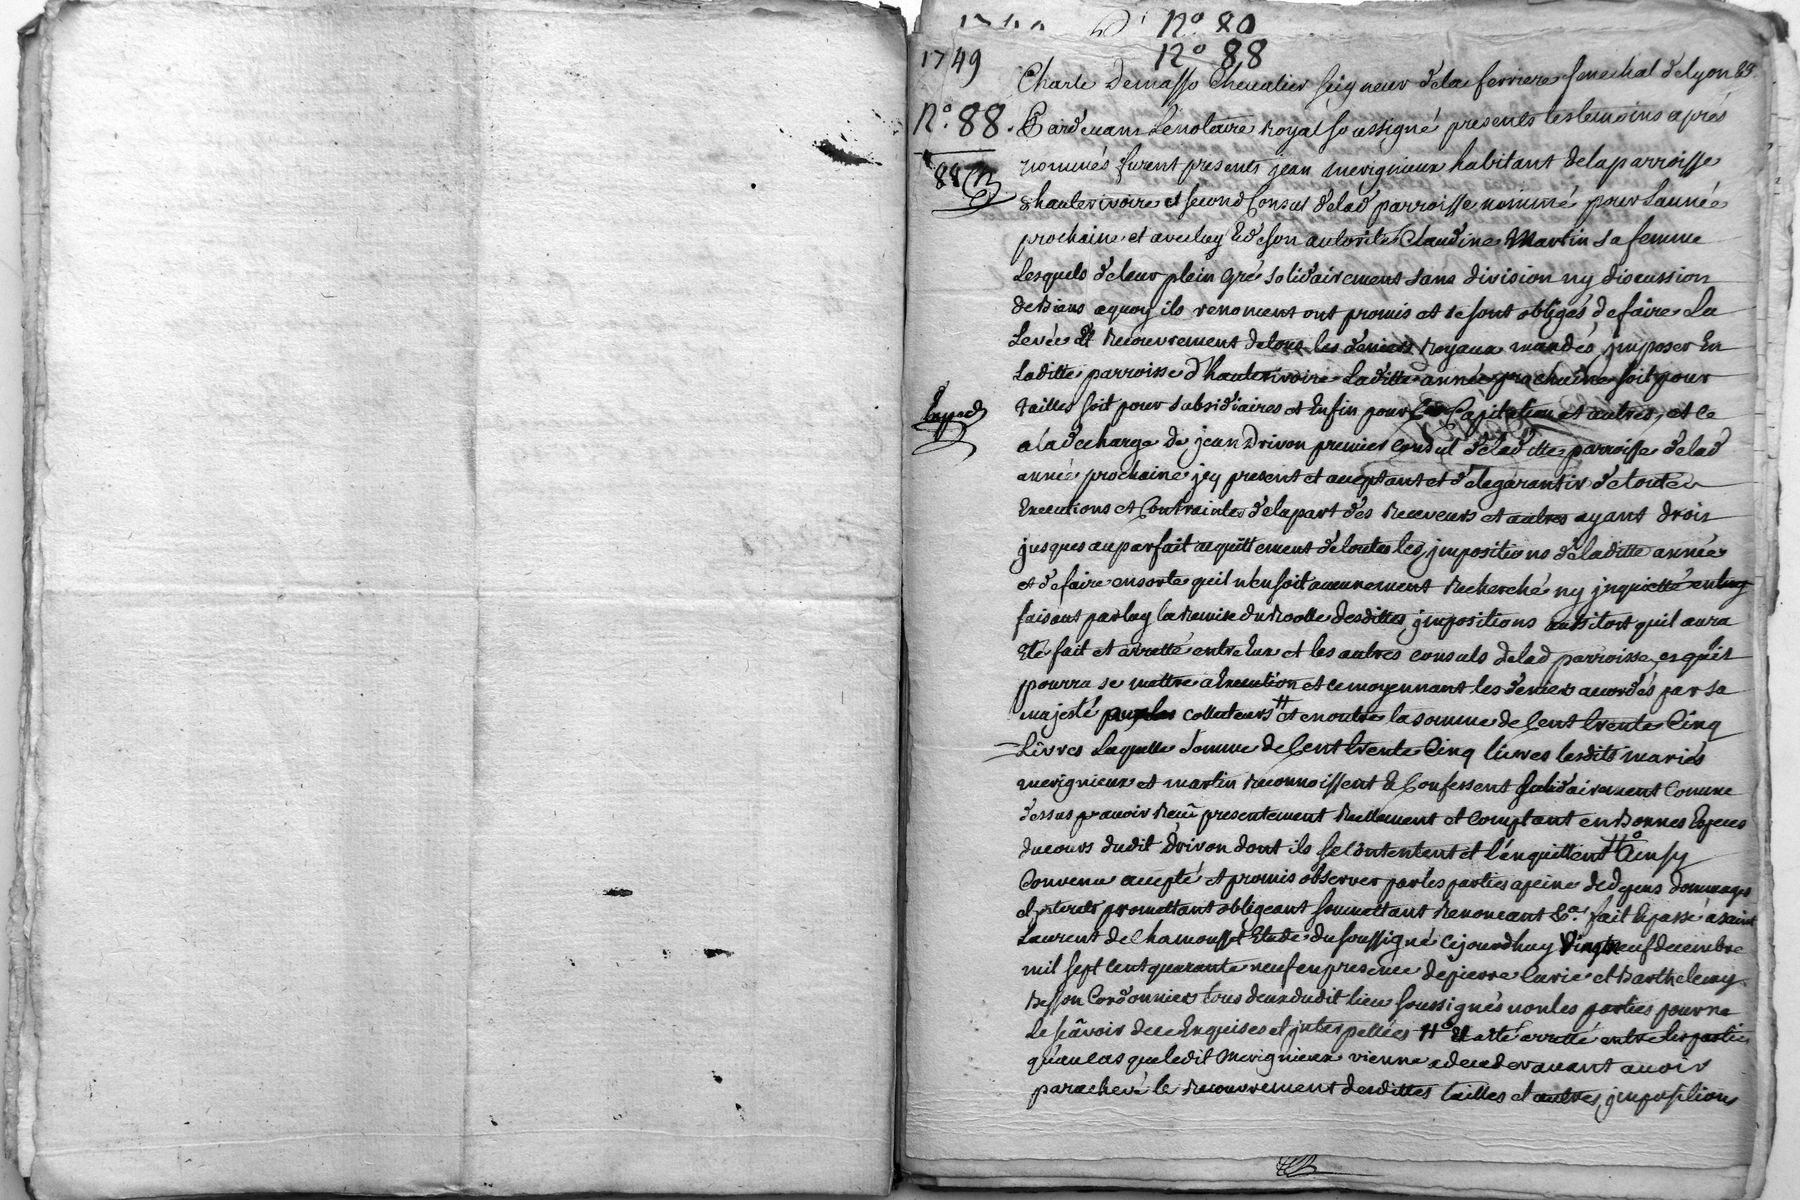 No 80
No 88
1749
No. 88.
88
Exped
Charle Demasso Chevalier Seigneur dela ferriere senechal de lyon &a
Pardevant Lenotaire Royal soussigné presents lestemoins aprés
nommés furent presents jean merignieux habitant delaparroisse
dhauterivoire et second Consul delad parroisse nommé pour Lannée
prochaine et avecluy Et deson autorité Claudine Martin sa femme
Lesquels deleur plein gré solidairement sans division ny discussion
de Biens aquoy ils renoncent ont promis et se sont obligés defaire La
Levée Et Recouvrement detous les deniers Royaux mandés jmposer En
Laditte parroisse d'hauterivoire Laditte année prochaine soit pour
tailles soit pour subsidiaires et Enfin pour La Capitation et autres, et ce
aladecharge de jean Drivon premier Consul deladitte parroisse delad
année prochaine jcy present et acceptant et delegarantir de toutes
Executions et Contraintes delapart des Receveurs et autres ayant droit
jusques auparfait acquittement detoutes les jmpositions deladitte année
et defaire ensorte quil n'en soit aucunement Recherché ny jnquietté enluy
faisant parluy la Remise du Roolle desdittes jmpositions aussitost quil aura
Eté fait et arretté entre Eux et les autres consuls delad parroisse et quil
pourra se mettre a Execution et cemoyennant les deniers accordés par sa
majesté collecteurs # et enoutre la somme de Cent trente Cinq
Livres Laquelle somme de Cent trente Cinq livres lesdits mariés
merignieux et martin Reconnoissent & Confessent solidairement Comme
dessus avoir Receu presentement Reellement et comptant en Bonnes Especes
ducours dudit Drivon dont ils se contentent et l'enquittent # Ainsy
Convenu accepté et promis observer par les parties apeine de dommages
et jnterets promettant obligeant soumettant Renoncant &a. fait Et passé a saint
Laurent de Chamousset Etude du soussigné cejourdhuy vingtneuf decembre
mil sept cent quarante neuf en presence de pierre Curie et Barthelemy
Besson Cordonnier tous deux dudit lieu soussignés non les parties pour ne
le sçavoir dece Enquises et jnterpellées # Et a eté arretté entre les parties
qu'aucas que ledit Merignieux vienne adeceder avant avoir
parachevé le Recouvrement desdittes tailles et autres jmpositions